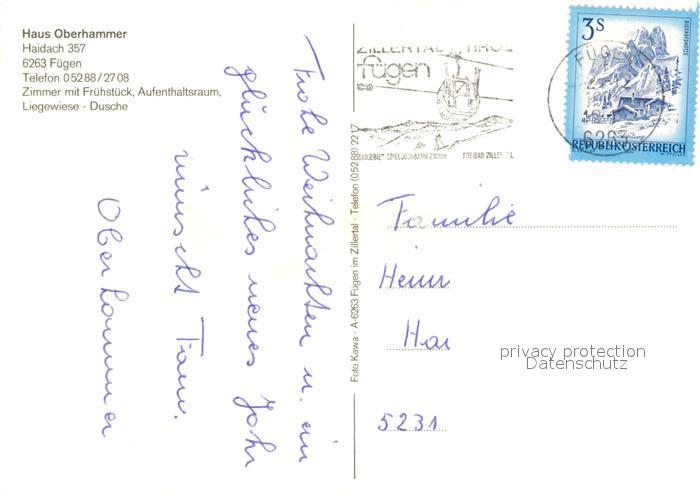 Haus Oberhammer
Haidach 357
6263 Fügen
Telefon 05288/2708
Zimmer mit Frühstück, Aufenthaltsraum,
Liegewiese - Dusche
Frohe Weihnachten u. ein
glückliches neues Jahr
wünscht Fam.
Oberhammer
Foto Kawa · A-6263 Fügen im Zillertal · Telefon (05288) 2217
ZILLERTAL TIROL
fügen
FREIBAD ZILLERTAL
3S
REPUBLIK ÖSTERREICH
Familie
5231
privacy protection
Datenschutz